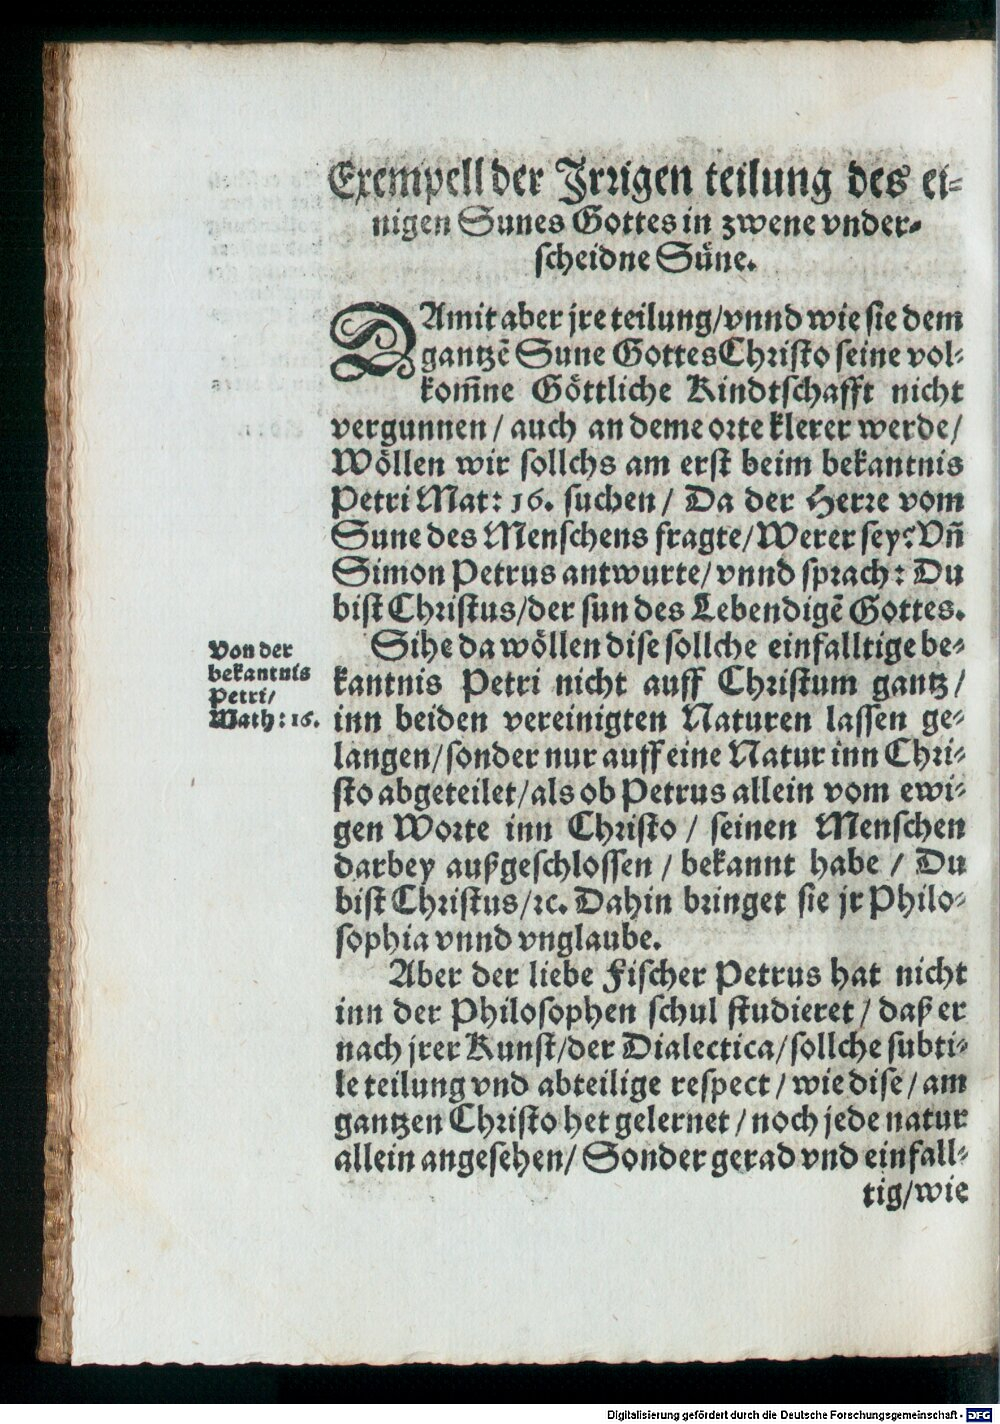 Exempell der Jrrigen teilung des ei-
nigen Sunes Gottes in zwene vnder-
scheidne Süne.
DAmit aber jre teilung/vnnd wie sie dem
gantzē Sune Gottes Christo seine vol-
kom̃ne Göttliche Kindtschafft nicht
vergunnen / auch an deme orte klerer werde/
Wöllen wir sollchs am erst beim bekantnis
Petri Mat: 16. suchen / Da der Herre vom
Sune des Menschens fragte/Wer er sey? Vñ
Simon Petrus antwurte/vnnd sprach: Du
bist Christus/der sun des Lebendigē Gottes.
Sihe da wöllen dise sollche einfalltige be-
kantnis Petri nicht auff Christum gantz/
inn beiden vereinigten Naturen lassen ge-
langen/sonder nur auff eine Natur inn Chri-
sto abgeteilet/als ob Petrus allein vom ewi-
gen Worte inn Christo / seinen Menschen
darbey außgeschlossen / bekannt habe / Du
bist Christus/ꝛc. Dahin bringet sie jr Philo-
sophia vnnd vnglaube.
Von der
bekantnis
Petri/
Math: 16.
Aber der liebe Fischer Petrus hat nicht
inn der Philosophen schul studieret / daß er
nach jrer Kunst/der Dialectica/sollche subti-
le teilung vnd abteilige respect / wie dise / am
gantzen Christo het gelernet / noch jede natur
allein angesehen/ Sonder gerad vnd einfall-
tig/wie
Digitalisierung gefördert durch die Deutsche Forschungsgemeinschaft - DFG